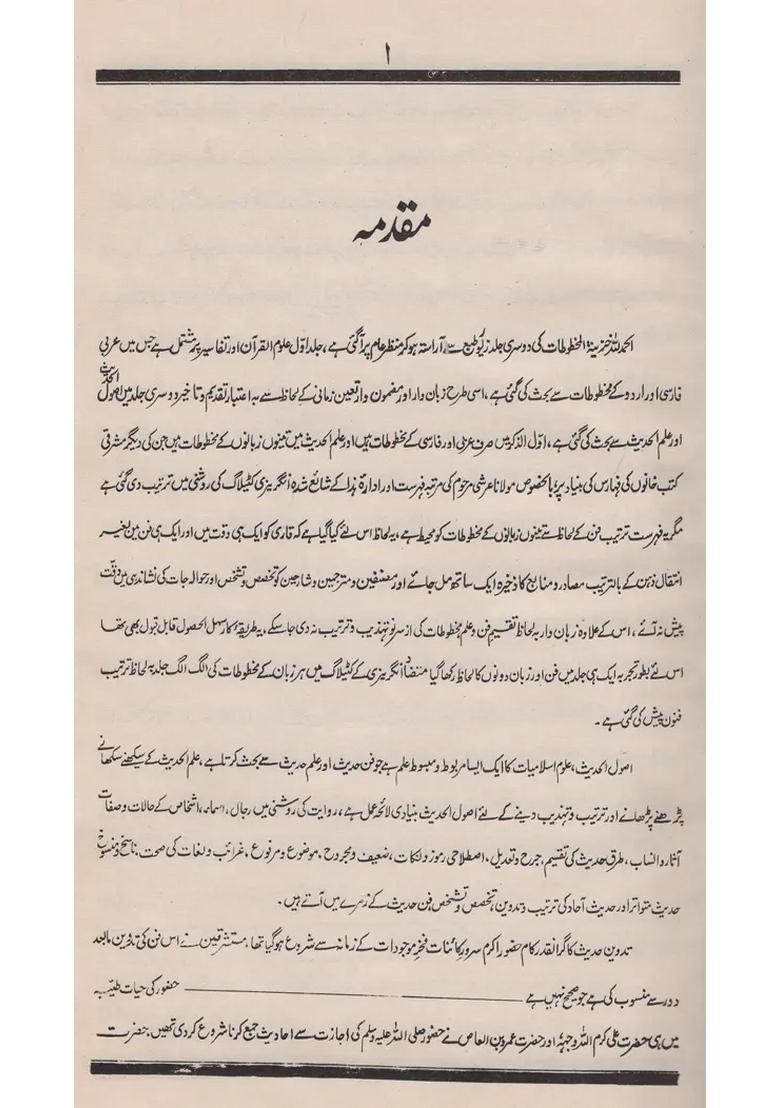 ۱
مقدمہ
الحمد للہ خزینۃ المخطوطات کی دوسری جلد زیور طبع سے آراستہ ہو کر منظر عام پر آگئی ہے، جلد اوّل علوم القرآن اور تفاسیر پر مشتمل ہے جس میں عربی
فارسی اور اردو کے مخطوطات سے بحث کی گئی ہے، اسی طرح زبان وار اور مضمون وار تعین زمانی کے لحاظ سے بہ اعتبار تقدیم و تاخیر دوسری جلد میں اصول الحدیث
اور علم الحدیث سے بحث کی گئی ہے، اوّل الذکر میں صرف عربی اور فارسی کے مخطوطات ہیں اور علم الحدیث میں تینوں زبانوں کے مخطوطات ہیں جن کی دیگر مشرقی
کتب خانوں کی فہارس کی بنیاد پر، بالخصوص مولانا عرشی مرحوم کی مرتبہ فہرست اور ادارۂ ہذا کے شائع شدہ انگریزی کٹیلاگ کی روشنی میں ترتیب دی گئی ہے
مگر یہ فہرست ترتیب فن کے لحاظ سے تینوں زبانوں کے مخطوطات کو محیط ہے، یہ لحاظ اس لئے کیا گیا ہے کہ قاری کو ایک ہی وقت میں اور ایک ہی فن میں بغیر
انتقال ذہن کے بالترتیب مصادر و منابع کا ذخیرہ ایک ساتھ مل جائے اور مصنفین و مترجمین و شارحین کو تخصص و تشخص اور حوالہ جات کی نشاندہی میں دقّت
پیش نہ آئے، اس کے علاوہ زبان وار بہ لحاظ تقسیم فن و علم مخطوطات کی از سر نو تہذیب و ترتیب نہ دی جا سکے، یہ طریقۂ کار سہل الحصول قابل قبول بھی تھا
اس لئے بطور تجربہ ایک ہی جلد میں فن اور زبان دونوں کا لحاظ رکھا گیا متضاد انگریزی کے کٹیلاگ میں ہر زبان کے مخطوطات کی الگ الگ جلد بہ لحاظ ترتیب
فنون پیش کی گئی ہے۔
اصول الحدیث، علوم اسلامیات کا ایک ایسا مربوط و مبسوط علم ہے جو فن حدیث اور علم حدیث سے بحث کرتا ہے، علم الحدیث کے سیکھنے سکھانے
پڑھنے پڑھانے اور ترتیب و تہذیب دینے کے لئے اصول الحدیث بنیادی لائحہ عمل ہے، روایت کی روشنی میں رجال، اسماء، اشخاص کے حالات و صفات
آثار و انساب، طرق حدیث کی تقسیم، جرح و تعدیل، اصطلاحی رموز و نکات، ضعیف و مجروح، موضوع و مرفوع، غرائب و لغات کی صحت، ناسخ و منسوخ
حدیث متواتر اور حدیث آحاد کی ترتیب و تدوین، تخصص و تشخص فن حدیث کے زمرے میں آتے ہیں۔
تدوین حدیث کا گرانقدر کام حضور اکرم سرور کائنات فخر موجودات کے زمانہ سے شروع ہو گیا تھا، مستشرقین نے اس فن کی تدوین مابعد
دور سے منسوب کی ہے جو صحیح نہیں ہے ——— حضور کی حیات طیبہ
میں ہی حضرت علی کرم اللہ وجہہٗ اور حضرت عمرو بن العاص نے حضور صلی اللہ علیہ وسلم کی اجازت سے احادیث جمع کرنا شروع کردی تھیں، حضرت